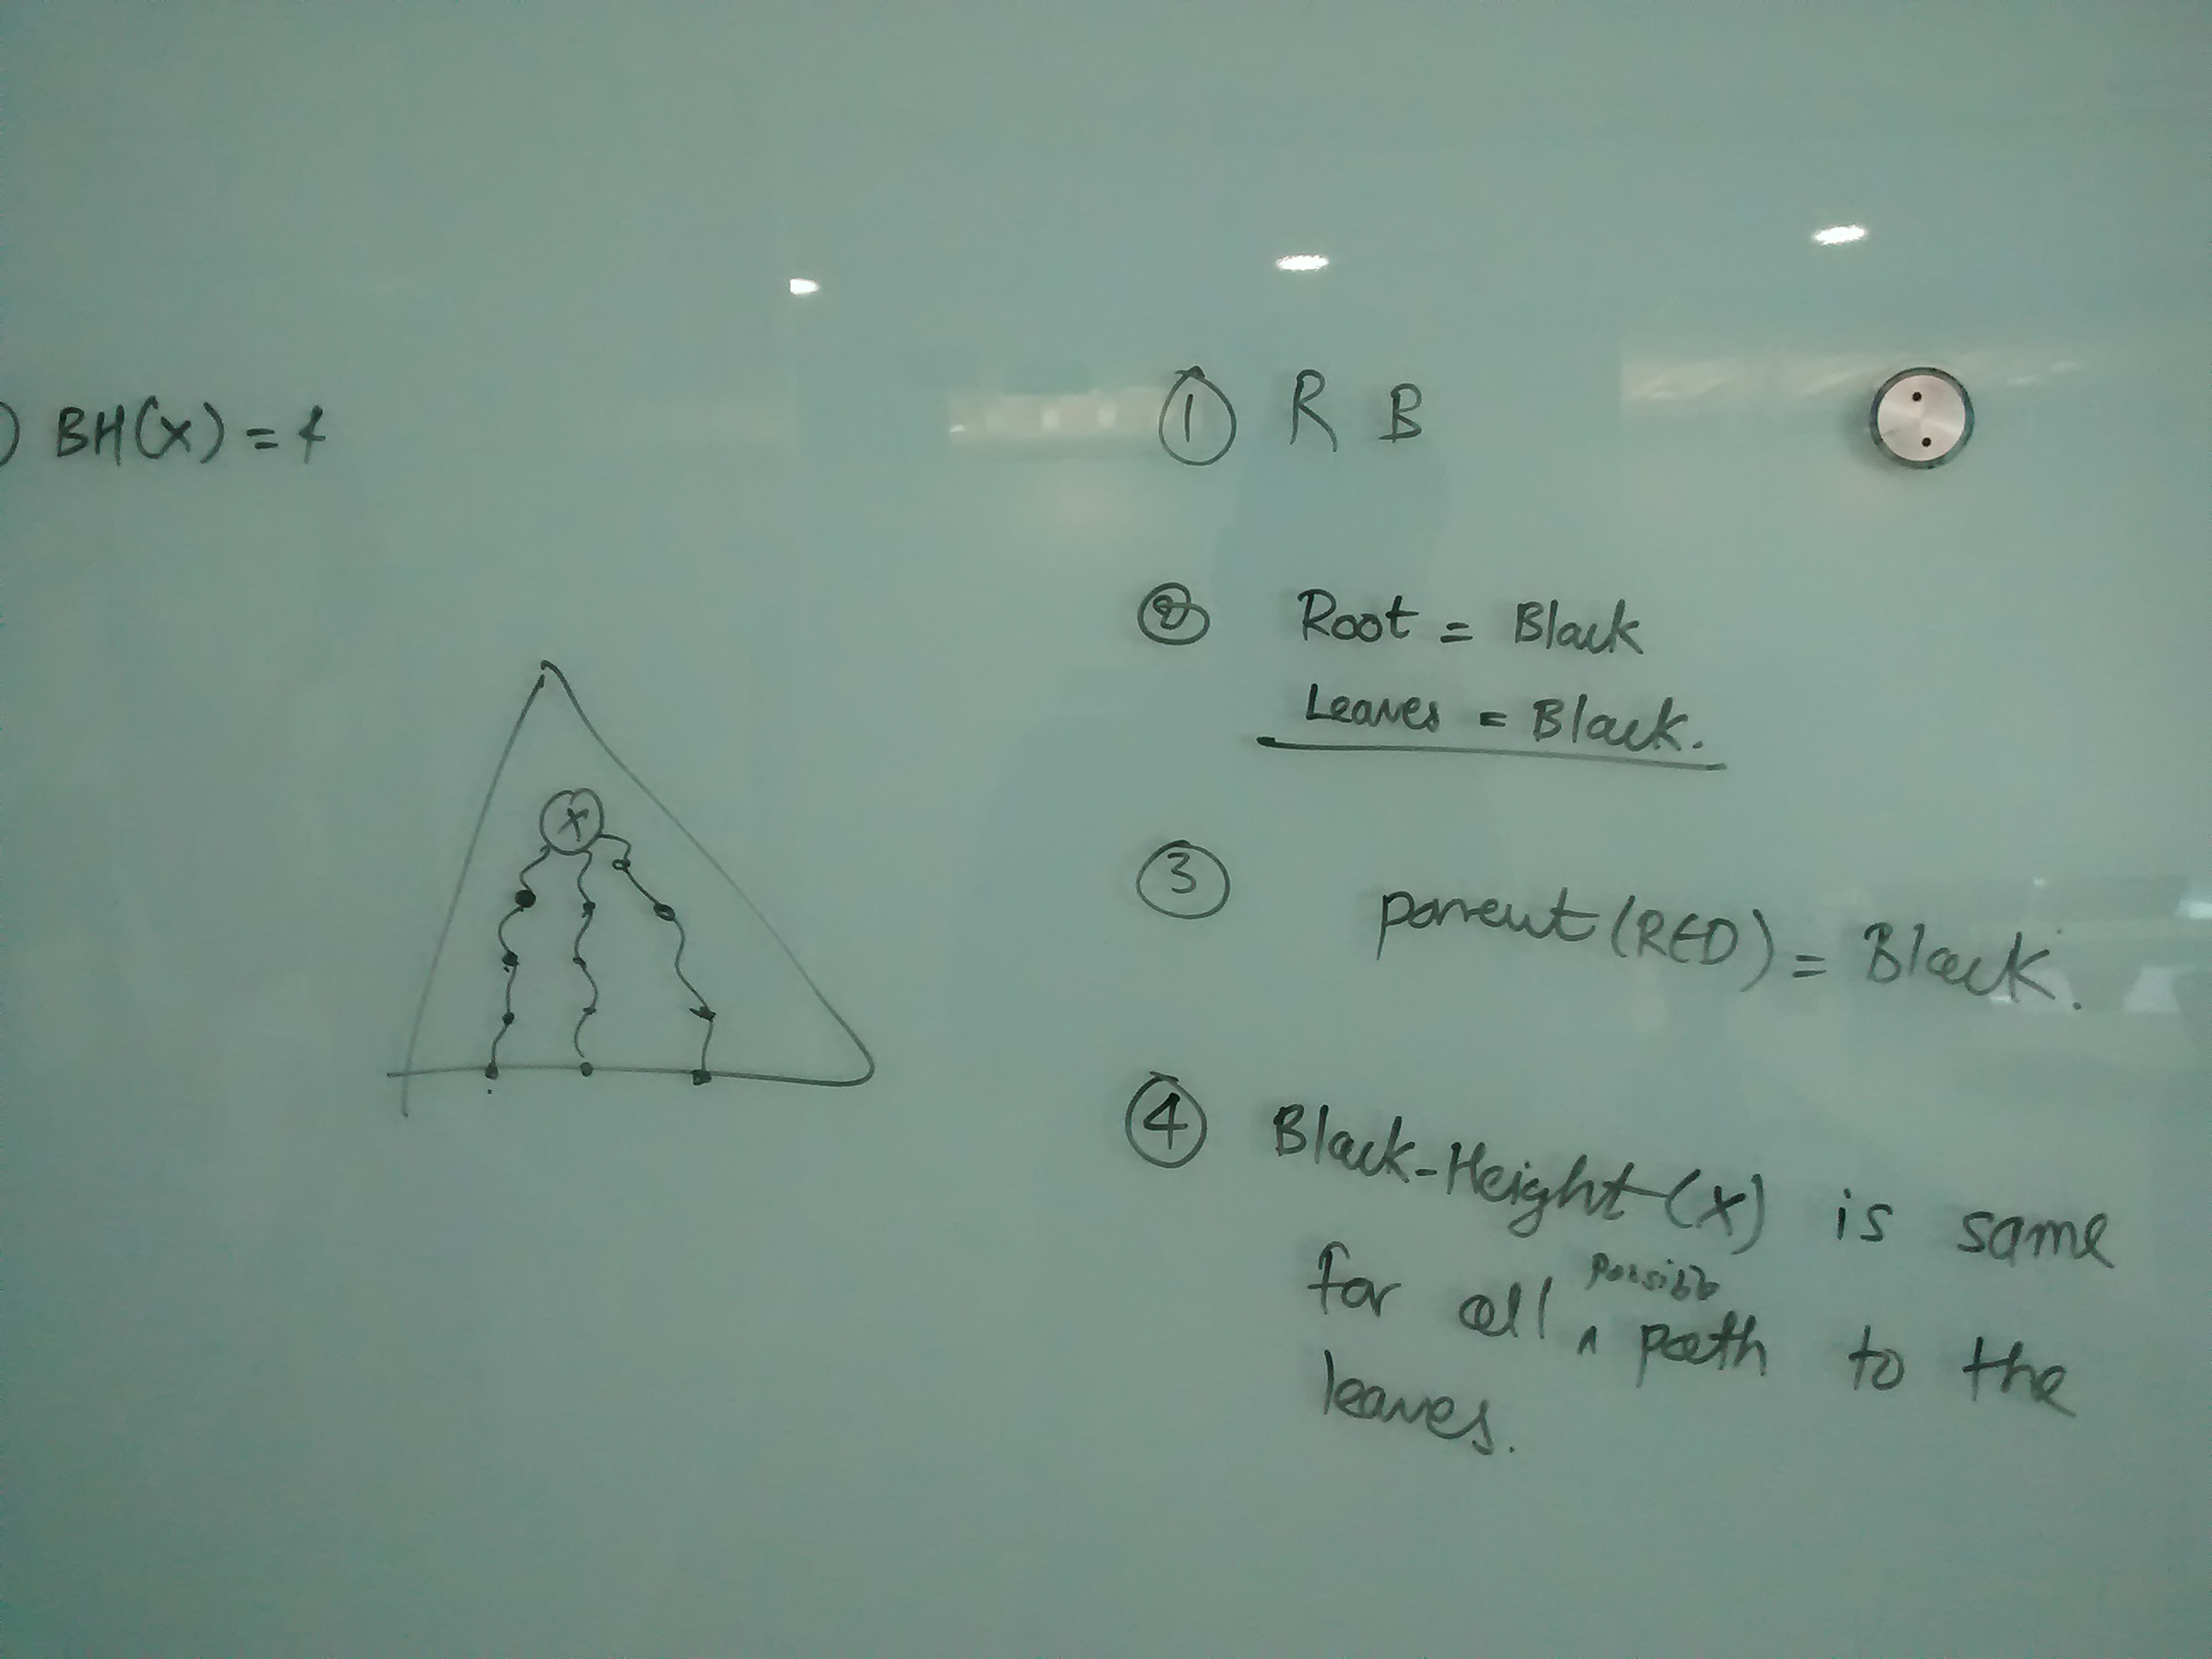 ) BH(X) = 4
X
① R B
② Root = Black
Leaves = Black.
③ parent (RED) = Black.
④ Black-Height (X) is same
possible
for all ^ path to the
leaves.